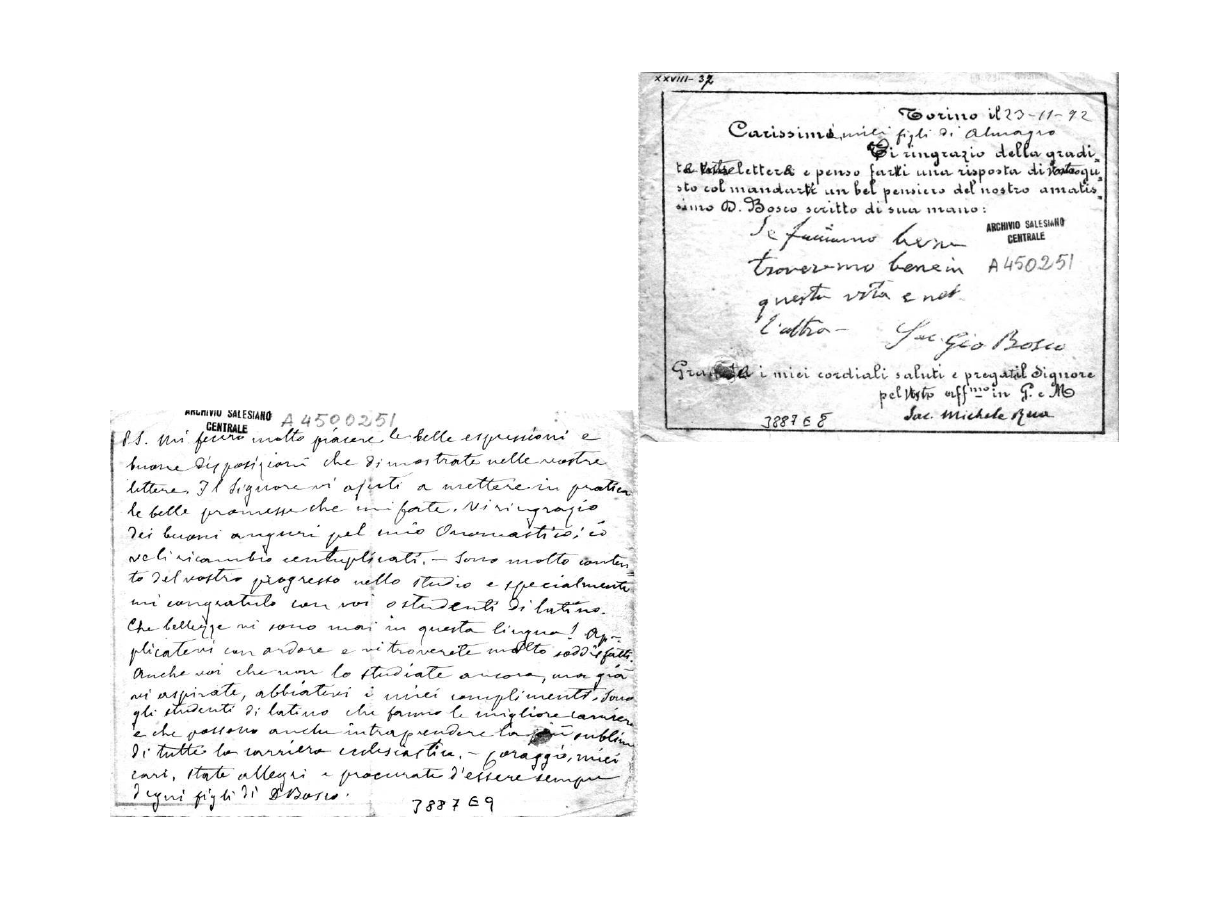 XXVIII-37
Torino il 23-11-92
Carissimi miei figli di Almagro
Ti ringrazio della gradi=
ta lettera e penso farti una risposta di gu=
sto col mandarti un bel pensiero del nostro amatis=
simo D. Bosco scritto di sua mano:
Se facciamo bene
troveremo bene in
questa vita e nel
l'altra-
Sac. Gio Bosco
ARCHIVIO SALESIANO
CENTRALE
A450251
i miei cordiali saluti e pregate il Signore
pel aff.mo in G. e M
Sac. Michele Rua
3887 E 8
ARCHIVIO SALESIANO
CENTRALE
A4500251
P.S. Mi fecero molto piacere le belle espressioni e
buone disposizioni che dimostrate nelle vostre
lettere. Il Signore vi ajuti a mettere in pratica
le belle promesse che mi fate. Vi ringrazio
dei buoni auguri pel mio Onomastico; io
ve li ricambio centuplicati. - Sono molto conten=
to del vostro progresso nello studio e specialmente
mi congratulo con voi o studenti di latino.
Che bellezze vi sono mai in questa lingua! Ap-
plicatevi con ardore e vi troverete molto soddisfatti.
Anche voi che non lo studiate ancora, ma già
vi aspirate, abbiatevi i miei complimenti. Sono
gli studenti di latino che fanno le migliore carriere
e che possono anche intraprendere la più sublime
di tutte la carriera ecclesiastica. - Coraggio, miei
cari, state allegri e procurate d'essere sempre
degni figli di D Bosco.
3887 E 9